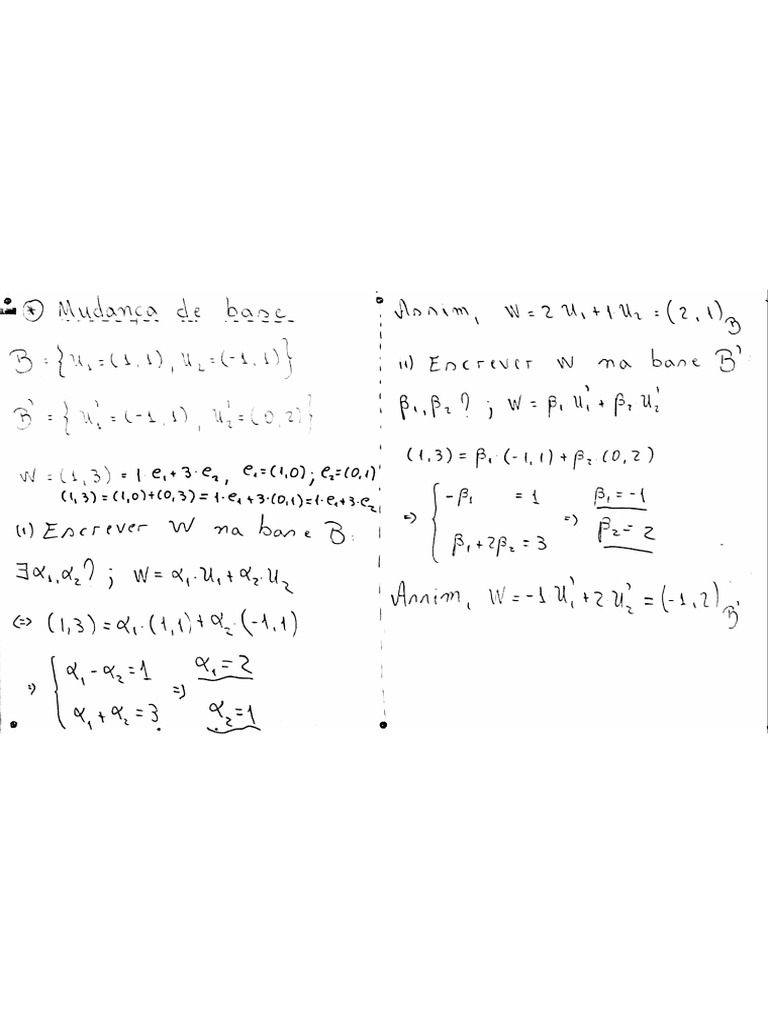 * Mudança de base
B = {u₁=(1,1), u₂=(-1,1)}
B' = {u₁'=(-1,1), u₂'=(0,2)}
W = (1,3) = 1·e₁+3·e₂, e₁=(1,0); e₂=(0,1)
(1,3)=(1,0)+(0,3)=1·e₁+3·(0,1)=1·e₁+3·e₂
(i) Escrever W na base B:
∃α₁,α₂?; W=α₁·u₁+α₂·u₂
⇔ (1,3)=α₁·(1,1)+α₂·(-1,1)
⇒ { α₁-α₂=1 ⇒ α₁=2
α₁+α₂=3 α₂=1
Assim, W=2u₁+1u₂=(2,1)_B
ii) Escrever W na base B':
β₁,β₂?; W=β₁u₁'+β₂u₂'
(1,3)=β₁·(-1,1)+β₂·(0,2)
⇒ { -β₁ = 1 ⇒ β₁=-1
β₁+2β₂=3 β₂=2
Assim, W=-1·u₁'+2·u₂'=(-1,2)_B'